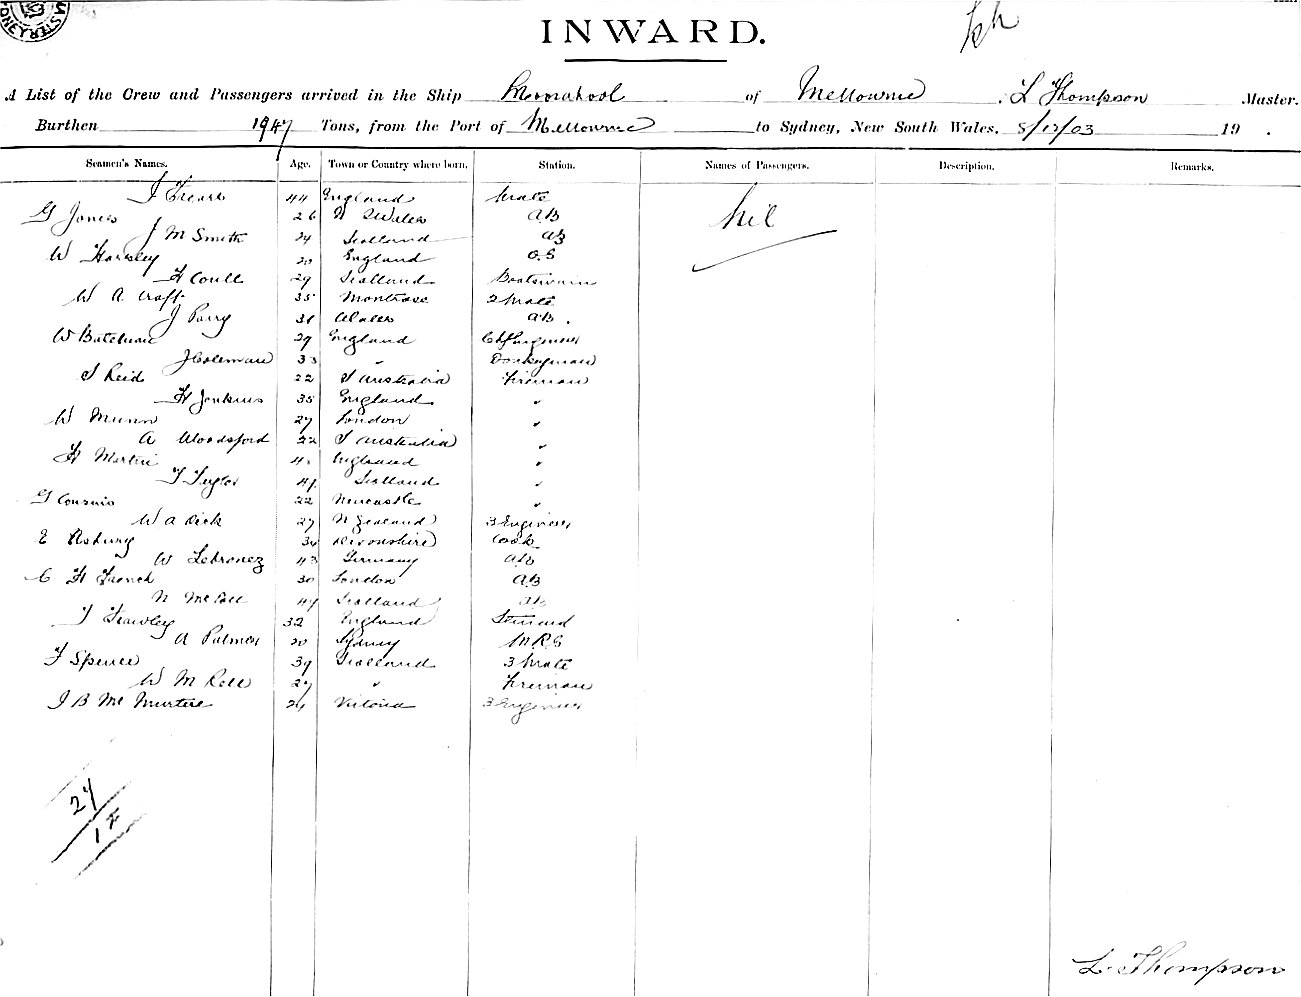 INWARD.
A List of the Crew and Passengers arrived in the Ship Moorabool of Melbourne . L Thompson Master.
Burthen 1947 Tons, from the Port of Melbourne to Sydney, New South Wales, 8/12/03 19 .
Seamen's Names. Age. Town or Country where born. Station. Names of Passengers. Description. Remarks.
44 England Mate
G Jones 26 N Wales AB nil
J M Smith 24 Scotland AB
W Horsley 20 England O.S
H Coull 29 Scotland Boatswain
W A Croft 35 Montrose 2 Mate
J Parry 31 Wales AB .
W Bateman 29 England Ch Engineer
J Coleman 33 " Donkeyman
S Reid 22 S Australia Fireman
H Jenkins 35 England "
W Munn 27 London "
A Woodsford 22 S Australia "
H Martin England "
T Taylor 41 Scotland "
G Cousins 22 Newcastle "
W A Dick 27 N Zealand 3 Engineer
E Asbury Devonshire Cook
W Lebronez 43 Germany AB
C H French 30 London AB
N McColl 47 Scotland AB
T Frawley 32 England Steward
A Palmer 20 Sydney M.R.S
F Spence 39 Scotland 3 Mate
W M Rell 27 " Fireman
J B McMurtrie 24 Victoria 3 Engineer
27
L. Thompson